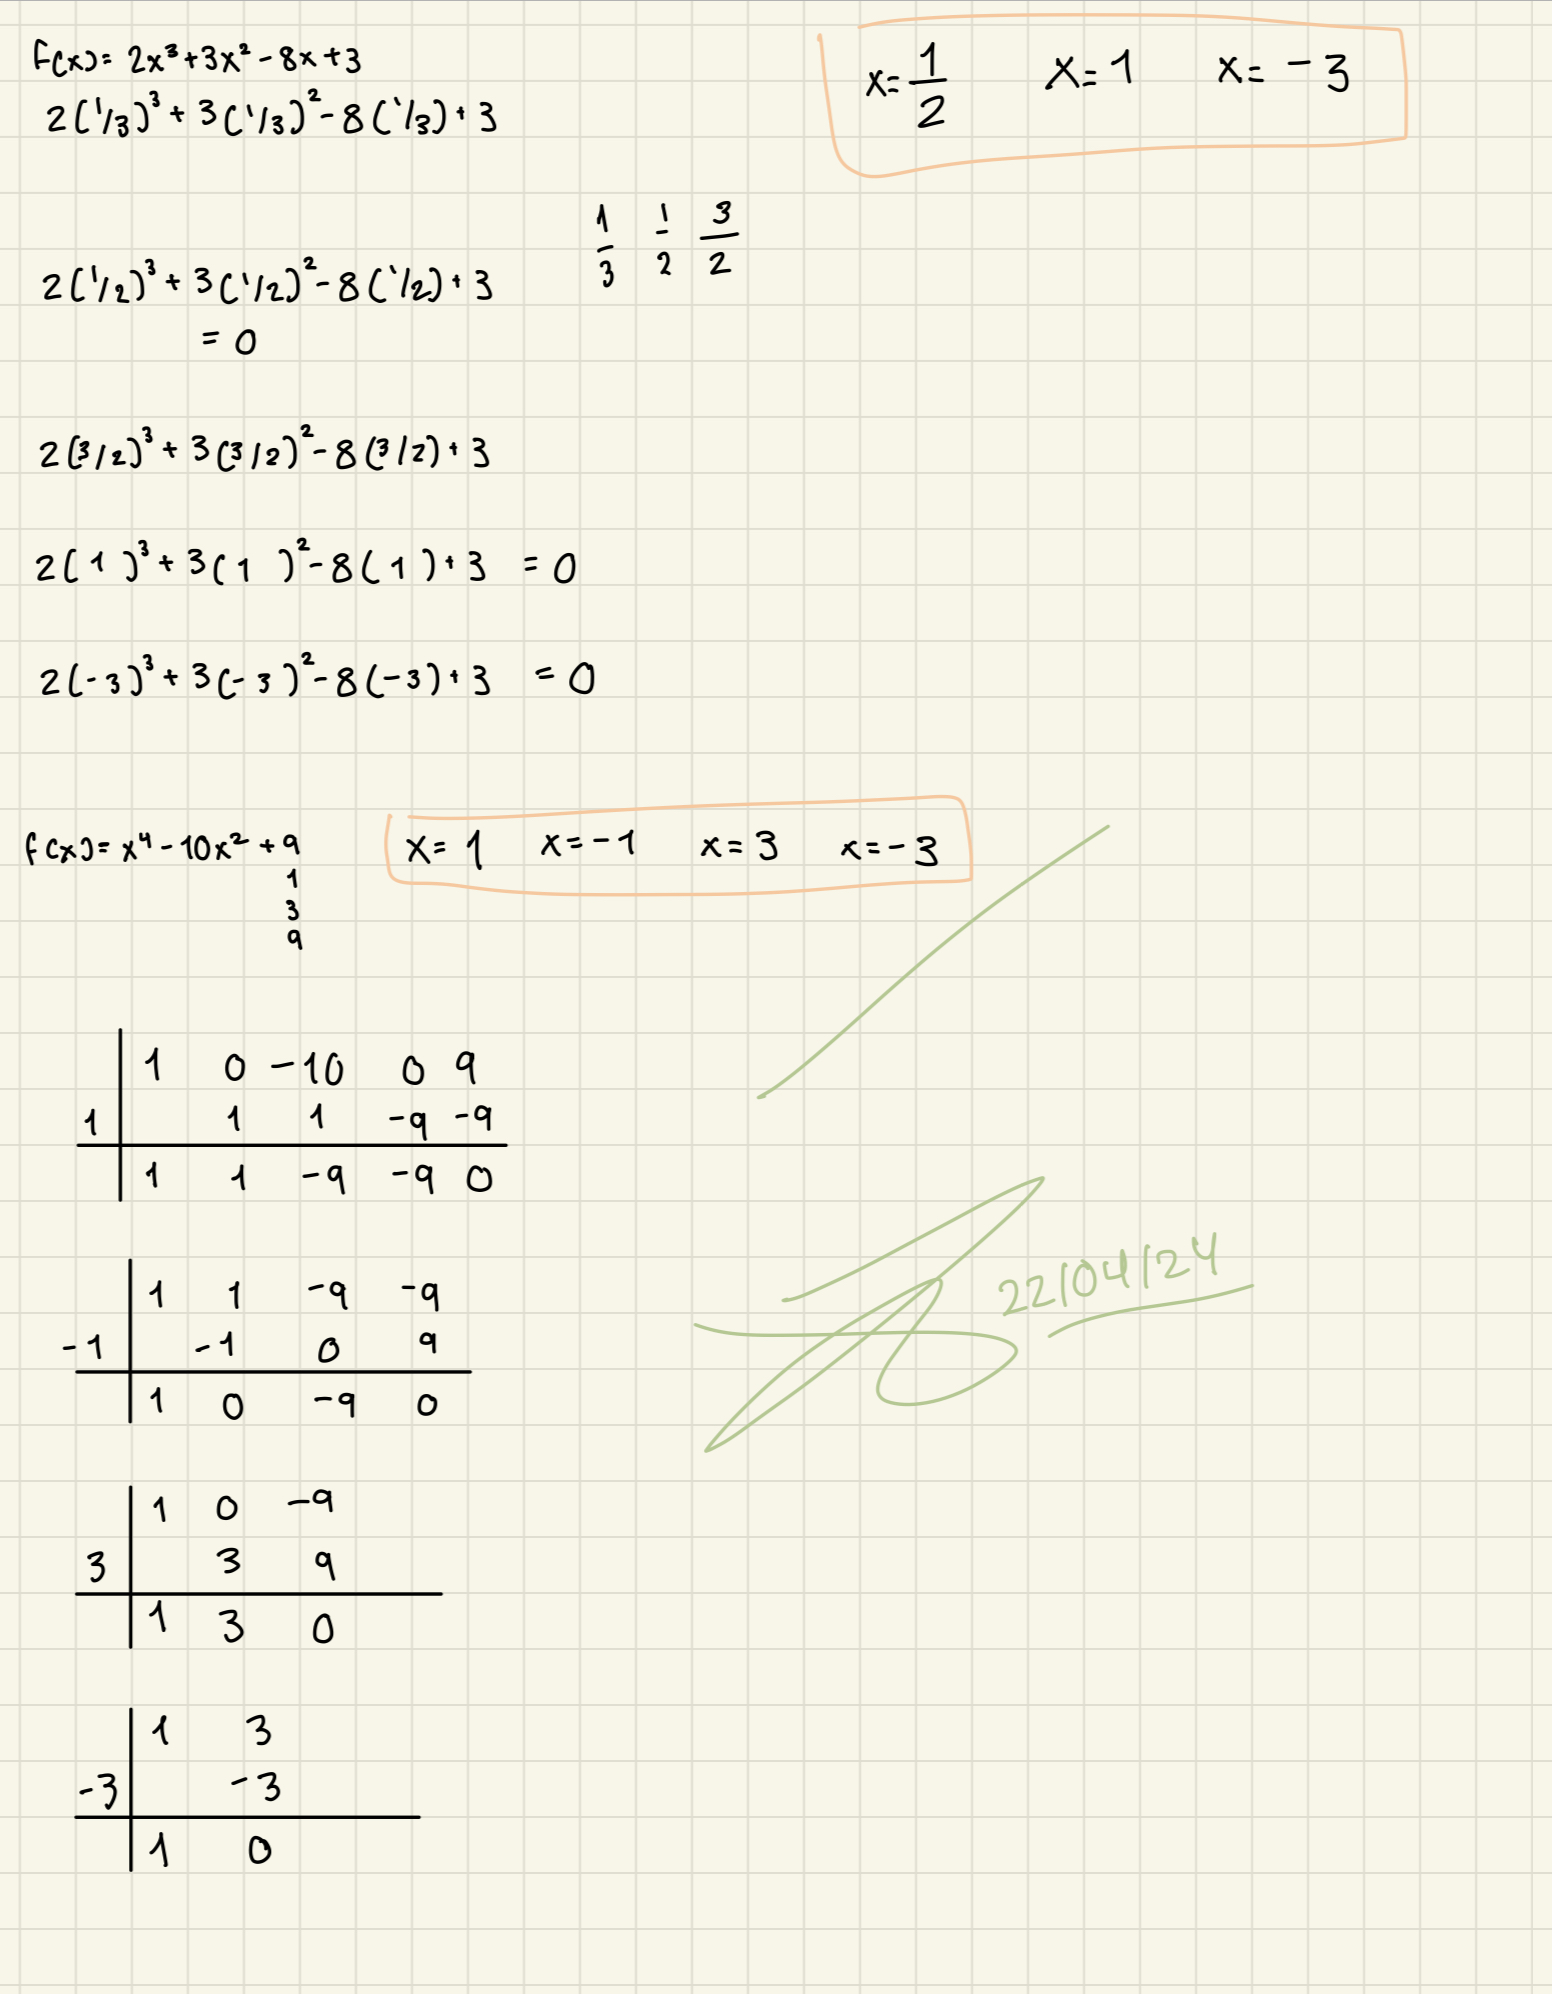 f(x)= 2x³+3x²-8x+3
2(1/3)³+3(1/3)²-8(1/3)+3
x=1/2 x=1 x=-3
1/3 1/2 3/2
2(1/2)³+3(1/2)²-8(1/2)+3
= 0
2(3/2)³+3(3/2)²-8(3/2)+3
2(1)³+3(1)²-8(1)+3 = 0
2(-3)³+3(-3)²-8(-3)+3 = 0
f(x)= x⁴-10x²+9 x=1 x=-1 x=3 x=-3
1
3
9
1 0 -10 0 9
1 1 1 -9 -9
1 1 -9 -9 0
1 1 -9 -9
-1 -1 0 9
1 0 -9 0
22/04/24
1 0 -9
3 3 9
1 3 0
1 3
-3 -3
1 0